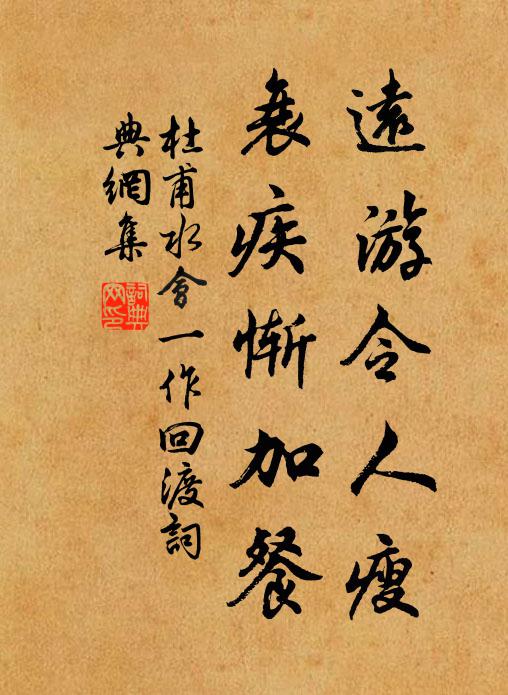 遠游令人瘦
衰疾慚加餐
杜甫水會一作回渡詞
典網集
詞典
网印